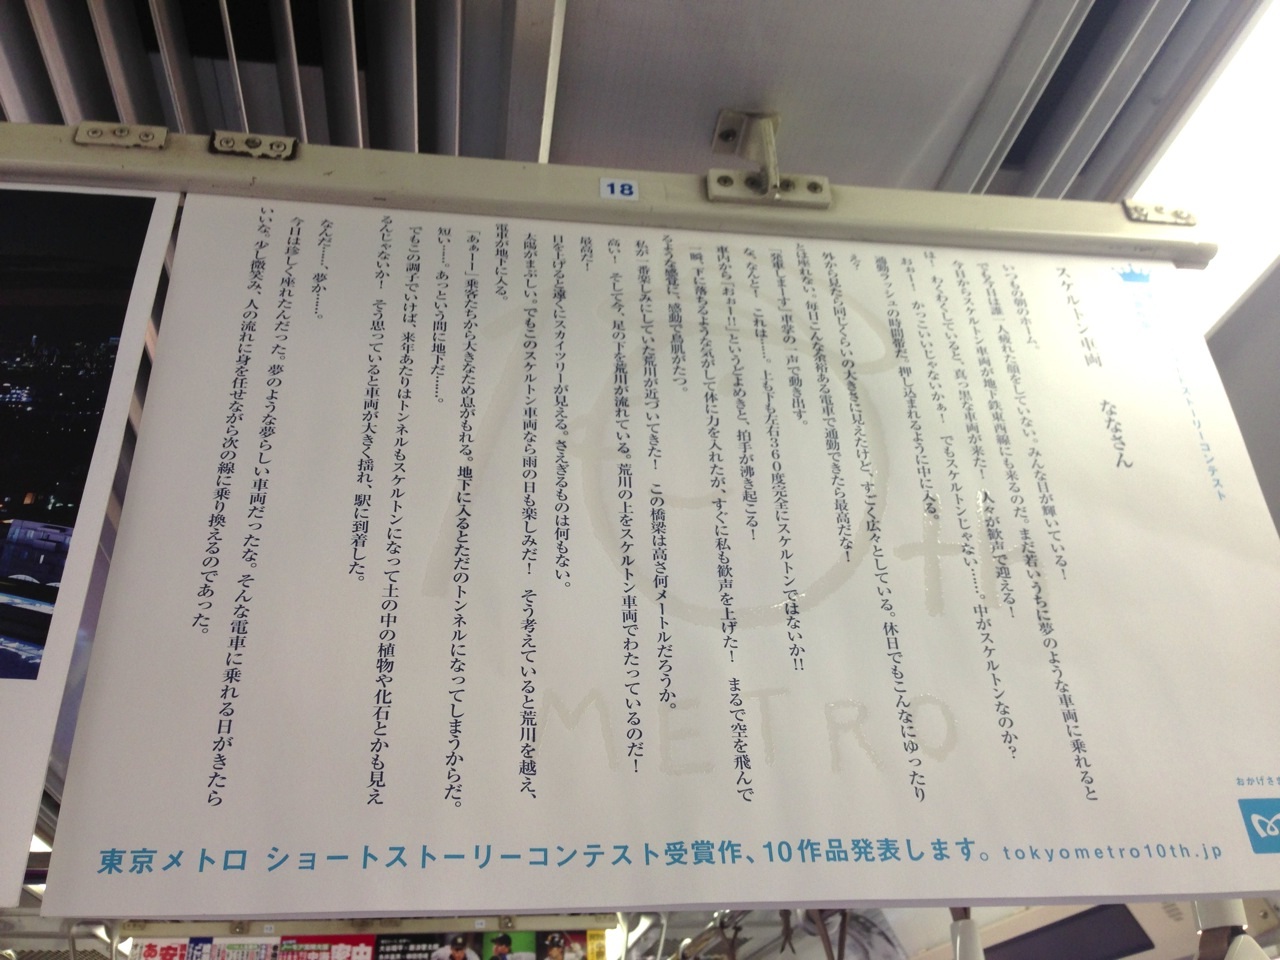 18
ストーリーコンテスト
スケルトン車両　ななさん
いつもの朝のホーム、
でも今日は誰一人疲れた顔をしていない。みんな目が輝いている！
今日からスケルトン車両が地下鉄東西線にも来るのだ。まだ若いうちに夢のような車両に乗れると
は！わくわくしていると、真っ黒な車両が来た！　人々が歓声で迎える！
おぉー！　かっこいいじゃないかぁー！　でもスケルトンじゃない……。中がスケルトンなのか？
通勤ラッシュの時間帯だ。押し込まれるように中に入る。
え？
外から見たら同じくらいの大きさに見えたけど、すごく広々としている。休日でもこんなにゆったり
とは座れない。毎日こんな余裕ある電車で通勤できたら最高だな！
「発車しまーす」車掌の一声で動き出す。
な、なんと！　これは……。上も下も左右360度完全にスケルトンではないか!!
車内から「おぉー!!」というどよめきと、拍手が沸き起こる！
一瞬、下に落ちるような気がして体に力を入れたが、すぐに私も歓声を上げた！　まるで空を飛んで
るような感覚に、感動で鳥肌がたつ。
私が一番楽しみにしていた荒川が近づいてきた！　この橋梁は高さ何メートルだろうか。
高い！　そして今、足の下を荒川が流れている。荒川の上をスケルトン車両でわたっているのだ！
最高だ！
目を上げると遠くにスカイツリーが見える。さえぎるものは何もない。
太陽がまぶしい。でもこのスケルトン車両なら雨の日も楽しみだ！　そう考えていると荒川を越え、
電車が地下に入る。
「あぁー！」乗客たちから大きなため息がもれる。地下に入るとただのトンネルになってしまうからだ。
短い……。あっという間に地下だ……。
でもこの調子でいけば、来年あたりはトンネルもスケルトンになって土の中の植物や化石とかも見え
るんじゃないか！　そう思っていると車両が大きく揺れ、駅に到着した。
なんだ……、夢か……。
今日は珍しく座れたんだった。夢のような夢らしい車両だったな。そんな電車に乗れる日がきたら
いいな。少し微笑み、人の流れに身を任せながら次の線に乗り換えるのであった。
10th
METRO
おかげさま
東京メトロ ショートストーリーコンテスト受賞作、10作品発表します。tokyometro10th.jp